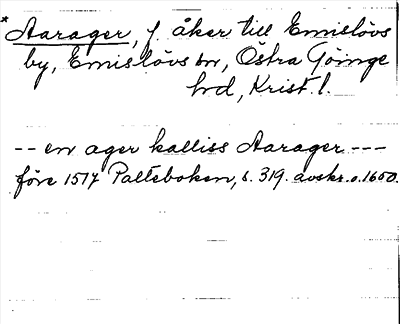 * Aarager, f. åker till Emislövs
by, Emislövs sn, Östra Göinge
hd, Krist. l.
-- en ager kalliss Aarager ---
före 1517 Palteboken, s. 319. avskr. o. 1600.